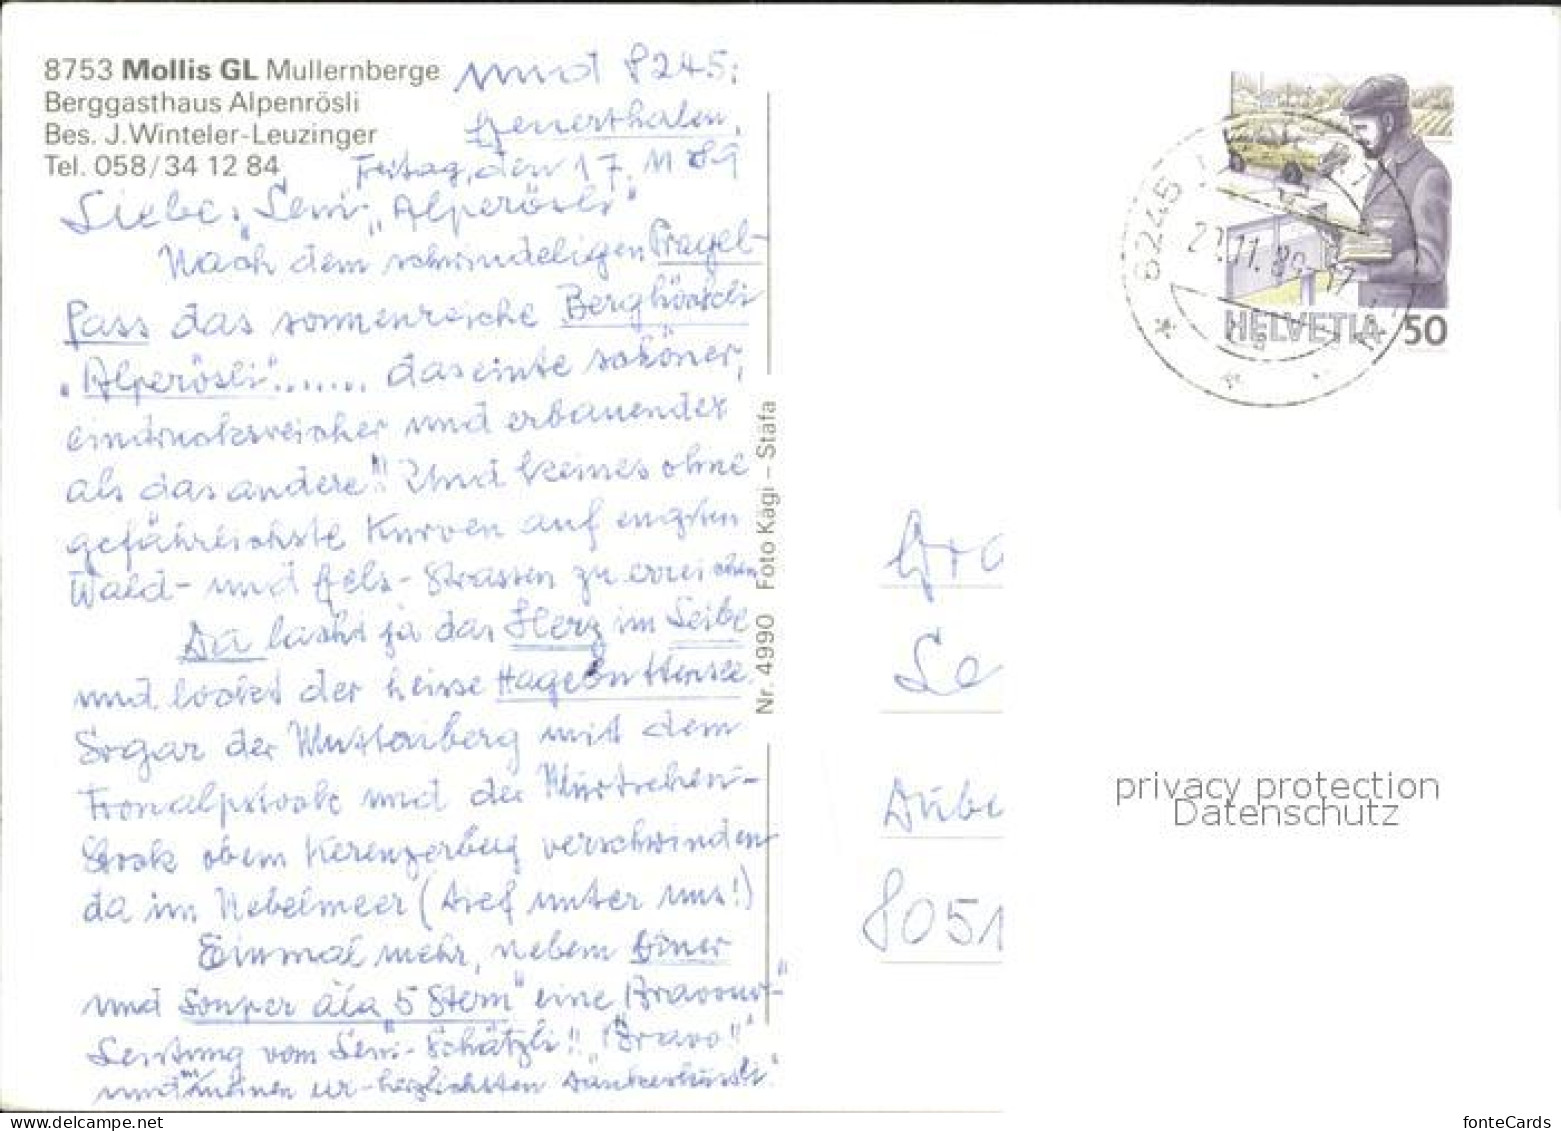 8753 Mollis GL Mullernberge
Berggasthaus Alpenrösli
Bes. J.Winteler-Leuzinger
Tel. 058/34 12 84
und 8245:
Feuerthalen,
Freitag, den 17. 11 89
Liebe "Seni" "Alperösli"
Nach dem schwindeligen Pragel-
Pass das sonnenreiche Berghöckli
"Alperösli"....... das eine schöner,
eindrucksreicher und erbauender
als das andere!! Und keines ohne
gefährlichste Kurven auf engsten
Wald- und Fels-Strassen zu erreichen
Da lacht ja das Herz im Leibe
und lockt der heisse Hagebuttensee.
Sogar der Mürtschenberg mit dem
Fronalpstock und der Mürtschen-
Stock oben Kerenzerberg verschwinden
da im Nebelmeer (tief unter uns!)
Einmal mehr, neben Diner
und Souper à la 5 Stern" eine "Bravour-"
Leistung vom "Seni-Schätzli"!! "Bravo!!"
und meinen ur-herzlichsten
Nr. 4990 Foto Kägi – Stäfa
8245
22.11.89-17
HELVETIA 50
Se
Dübe
8051
privacy protection
Datenschutz
fonteCards
www.delcampe.net